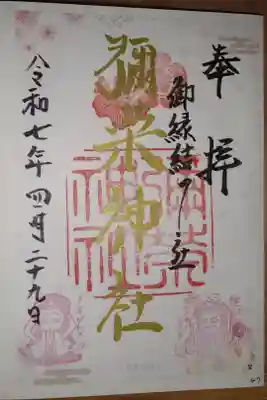 奉拝
御縁結の社
彌栄神社
令和七年四月二十九日